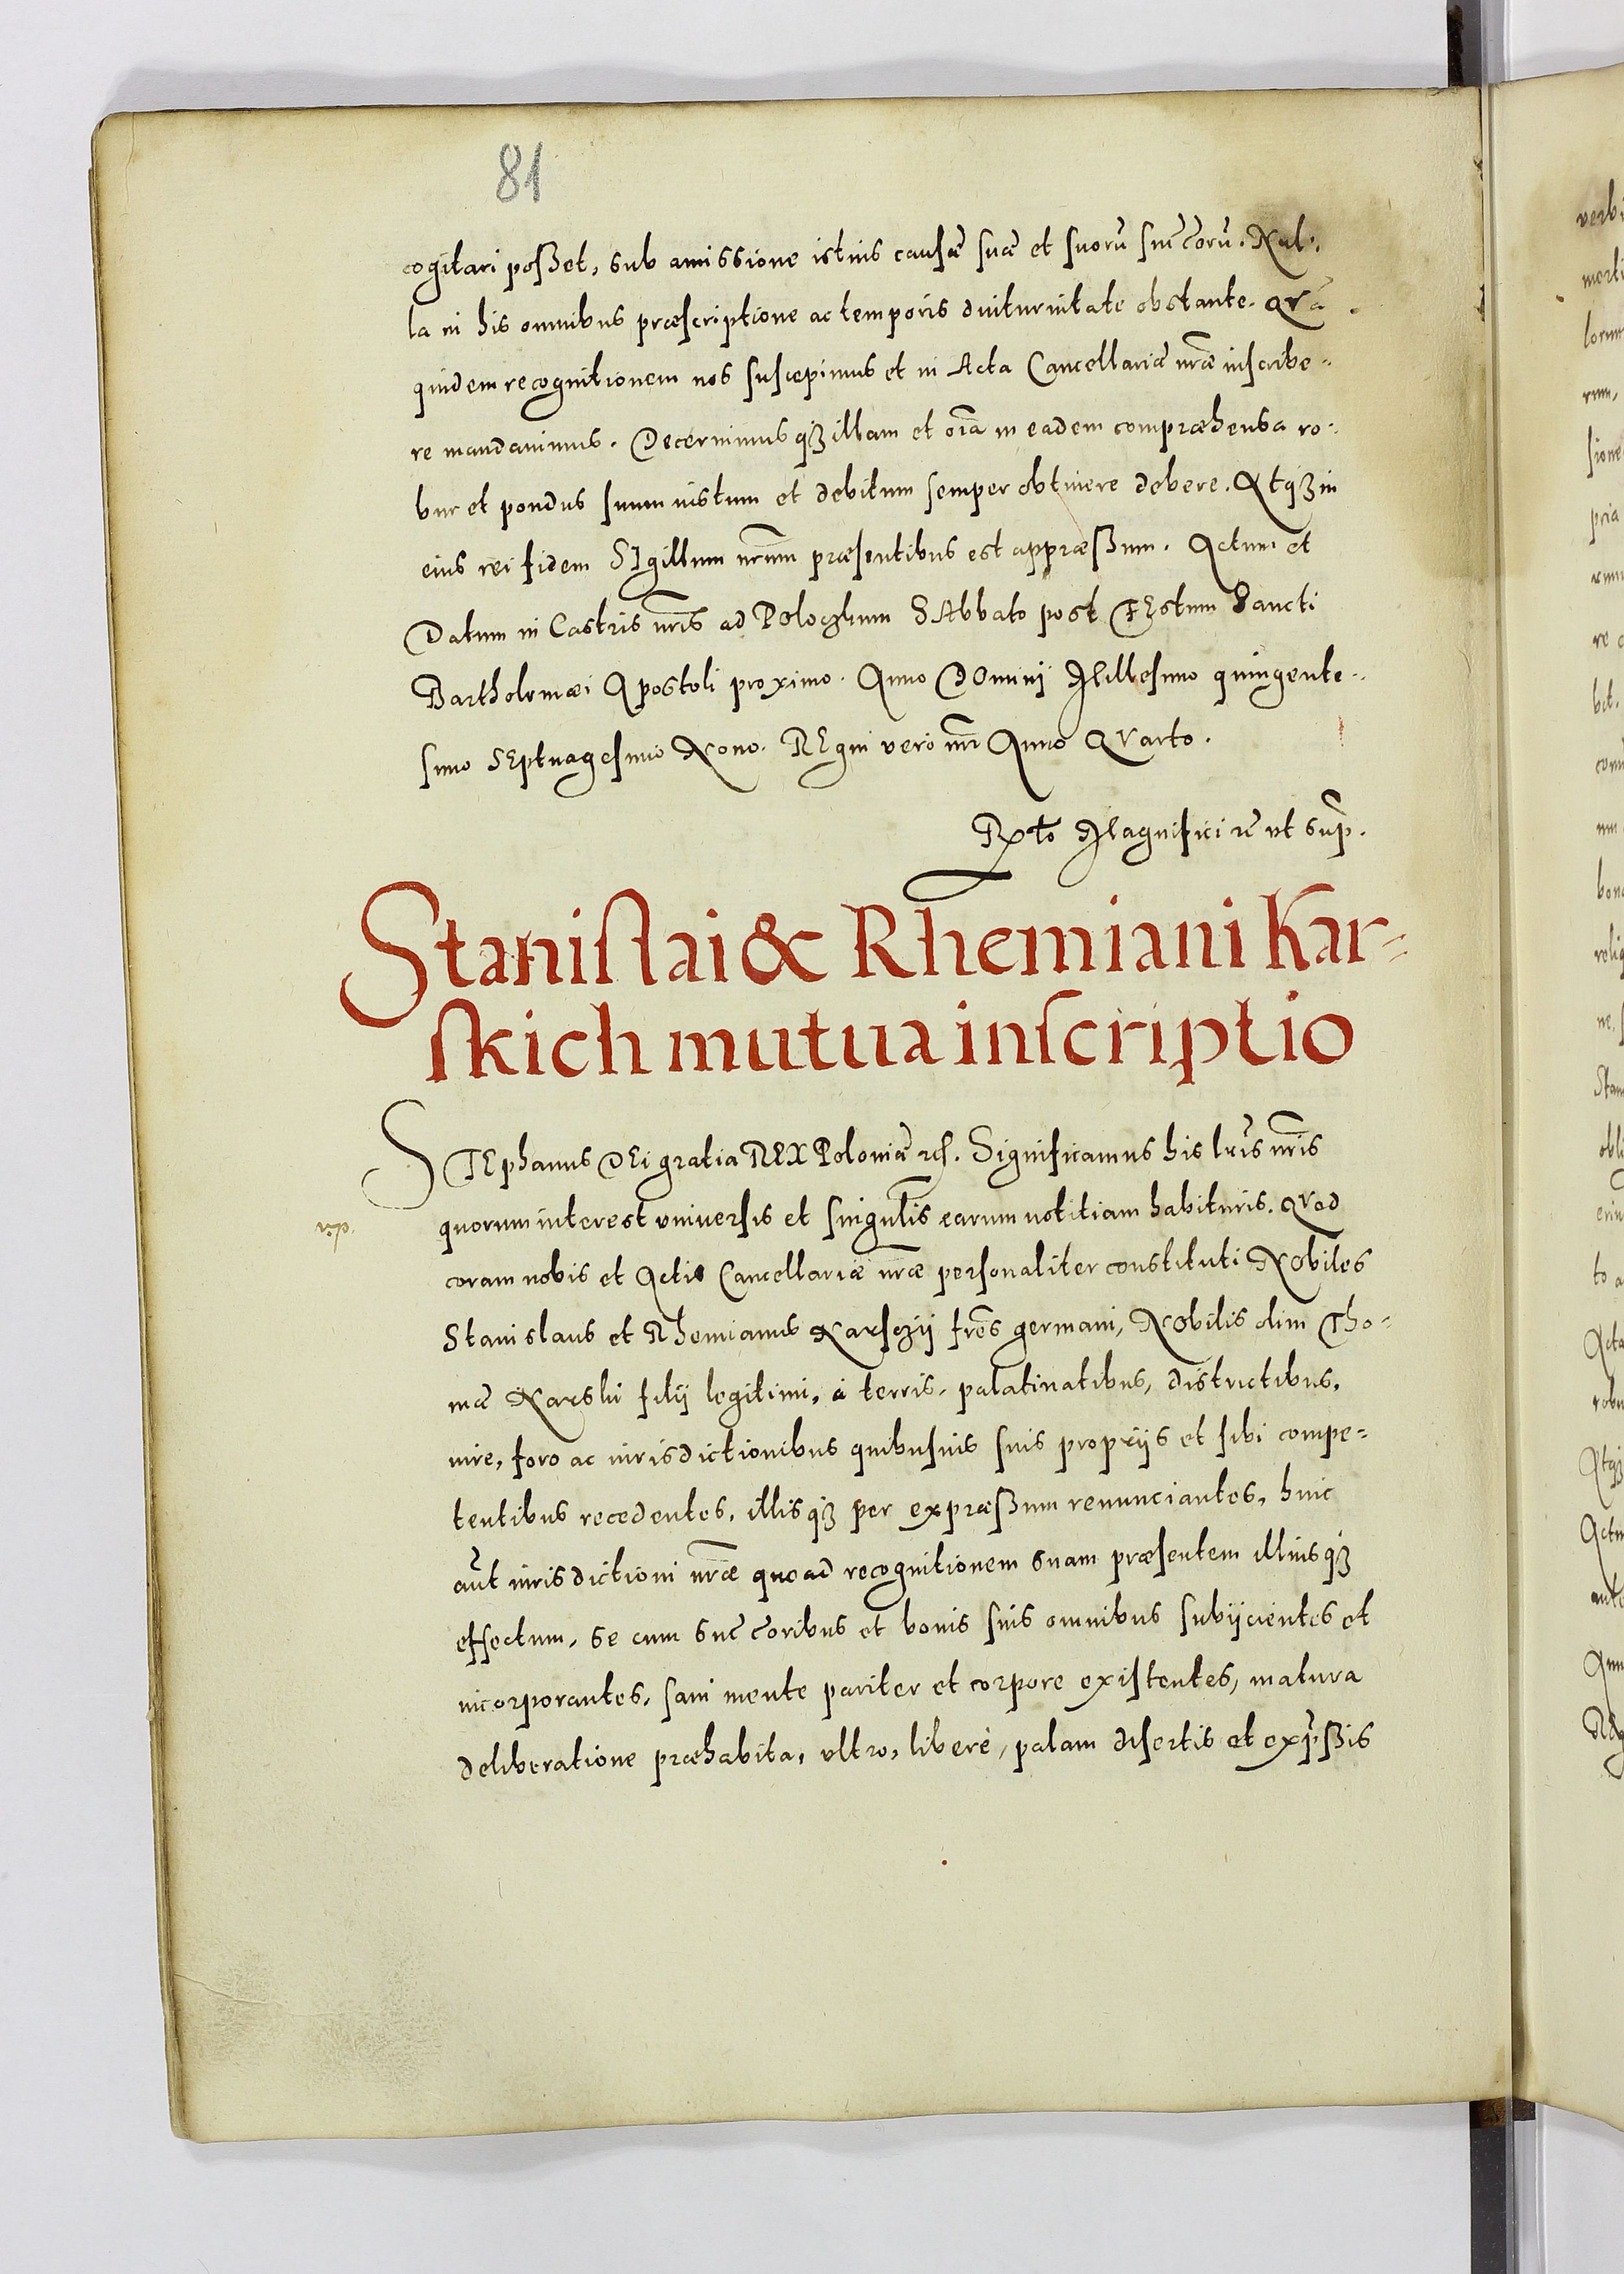 81
cogitari poßet, sub amissione istius causæ suæ et suorū suc̄corū. Nul-
la in his omnibus præscriptione ac temporis diuturnitate obstante. QVā
quidem recognitionem nos suscepimus et in Acta Cancellariæ nr̄æ inscribe-
re mandauimus. Decernimus qꝫ illam et oīa in eadem compræhensa ro-
bur et pondus suum iustum et debitum semper obtinere debere. Atqꝫ in
eius rei fidem SIgillum nr̄um præsentibus est appræßum. Actum et
Datum in Castris nr̄is ad Poloczkum SAbbato post FEstum Sancti
Bartholomæi Apostoli proximo. Anno DOminij Millesimo quingente-
simo SEptuagesimo Nono. REgni vero nr̄i Anno QVarto.
Rx̄to Magnifici ꝛc̄ vt sup̄.
Stanislai & Rhemiani Kar-
skich mutua inscriptio
STEphanus DEi gratia REX Poloniæ ꝛcꝭ. Significamus his lr̄is nr̄is
quorum interest vniuersis et singul̄is earum notitiam habituris. QVod
coram nobis et Actis Cancellariæ nr̄æ personaliter constituti NObiles
Stanislaus et Rhemianus Karsczij fr̄es germani, NObilis olim Tho-
mæ Karski filij legitimi, à terris, palatinatibus, districtibus,
iure, foro ac iurisdictionibus quibusuis suis proprijs et sibi compe-
tentibus recedentes, illisqꝫ per expræßum renunciantes, huic
aūt iurisdictioni nr̄æ quoad recognitionem suam præsentem illiusqꝫ
effectum, se cum suc̄coribus et bonis suis omnibus subijcientes et
incorporantes, sani mente pariter et corpore existentes, matura
deliberatione præhabita, vltro, liberè, palam disertis et exp̄ßis